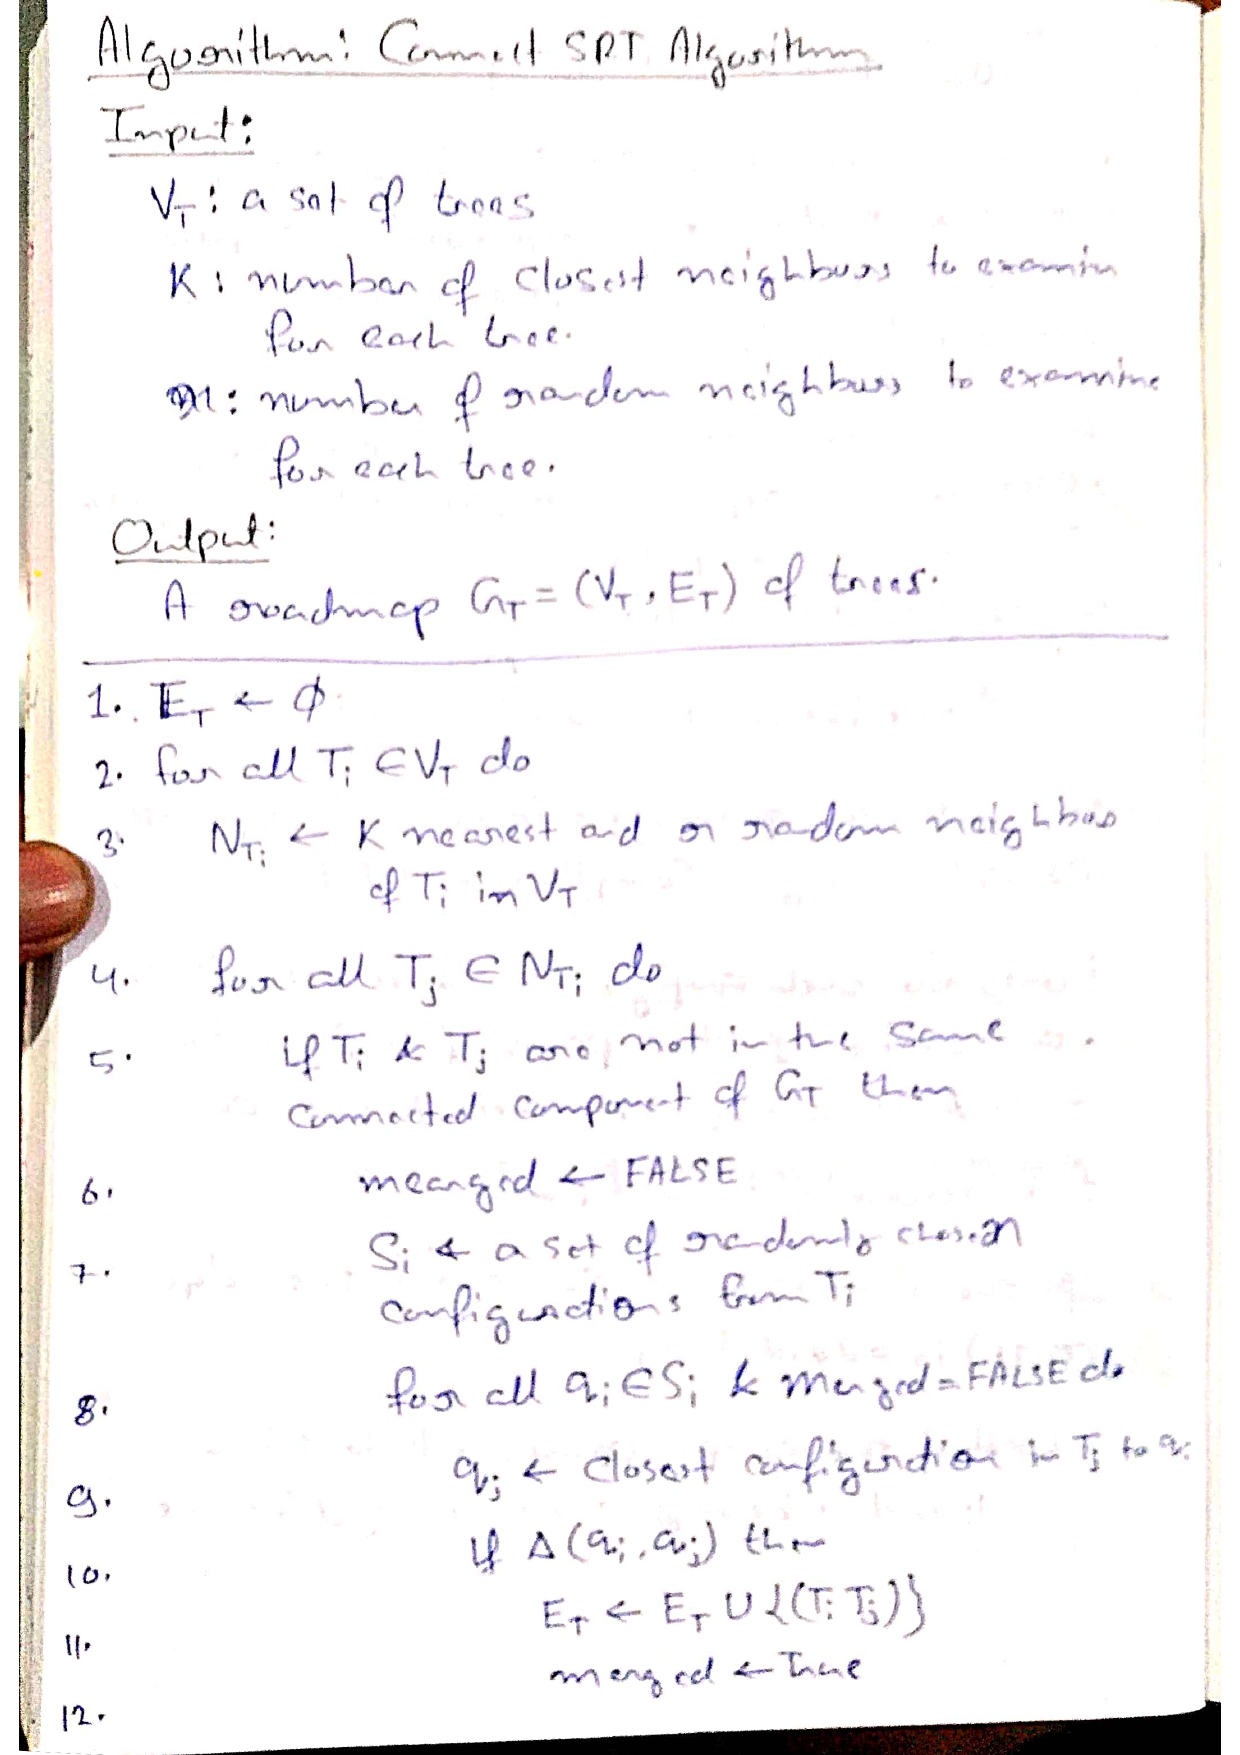 Algorithm: Connect SRT Algorithm
Input:
V_T : a set of trees
K : number of closest neighbours to examine
for each tree.
r : number of random neighbours to examine
for each tree.
Output:
A roadmap G_T = (V_T, E_T) of trees.
1. E_T ← ϕ
2. for all T_i ∈ V_T do
3. N_Ti ← K nearest and r random neighbos
of T_i in V_T
4. for all T_j ∈ N_Ti do
5. if T_i & T_j are not in the same
connected component of G_T then
6. mearged ← FALSE
7. S_i ← a set of randomly chosen
configurations from T_i
8. for all q_i ∈ S_i & merged = FALSE do
9. q_j ← closest configuration in T_j to q_i
10. if Δ(q_i, q_j) then
11. E_T ← E_T ∪ {(T_i T_j)}
12. merged ← True